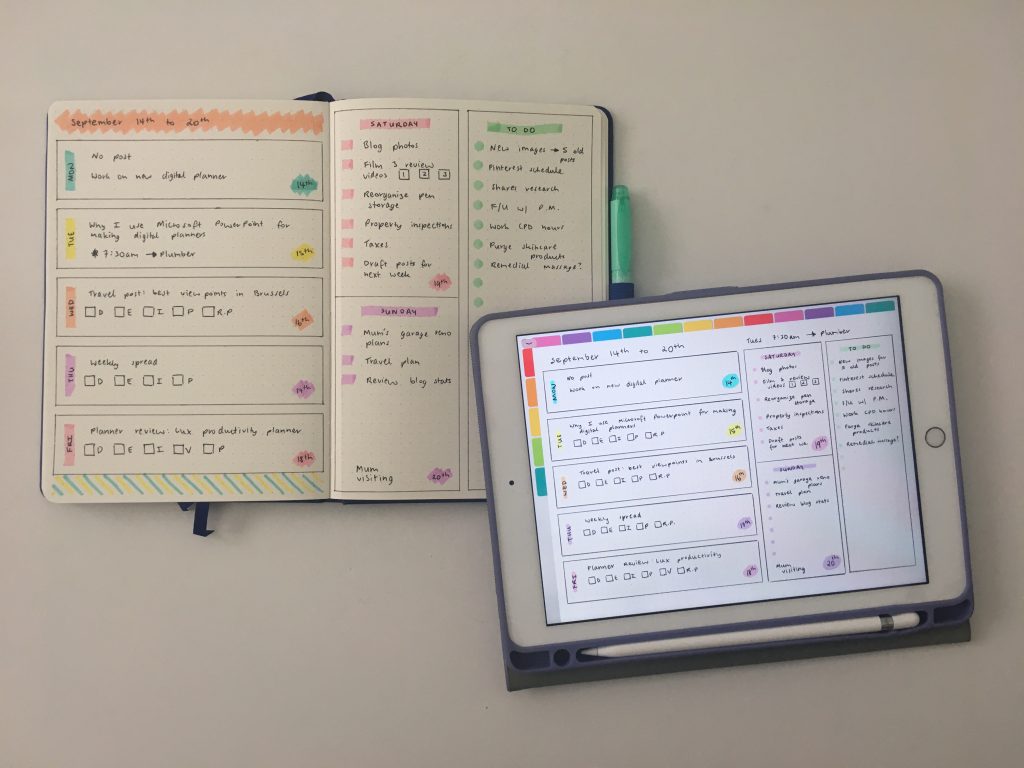 September 14th to 20th
MON
No post
Work on new digital planner
14th
TUE
Why I use Microsoft PowerPoint for
making digital planners
* 7:30am → Plumber
15th
WED
Travel post: best viewpoints in Brussels
D E I P R.P.
16th
THU
Weekly spread
D E I P
17th
FRI
Planner review: Lux productivity planner
D E I V P
18th
SATURDAY
Blog photos
Film 3 review
videos 1 2 3
Reorganize pen
storage
Property inspections
Taxes
Draft posts for
next week
19th
SUNDAY
Mum's garage reno
plans
Travel plan
Review blog stats
Mum
visiting
20th
TO DO
New images → 5 old
posts
Pinterest schedule
Shares research
F/U w/ P.M.
Work CPD hours
Purge skincare
products
Remedial massage?
September 14th to 20th
Tues 7:30am → Plumber
MON
No post
Work on new digital planner
14th
TUE
Why I use microsoft Powerpoint for making
digital planners
D E I P R.P
15th
WED
Travel post: best viewpoints in Brussels
D E I P R.P
16th
THU
Weekly spread
D E I P R.P.
17th
FRI
Planner Review Lux productivity
D E I P V R.P
18th
SATURDAY
Blog photos
Film 3 review
videos 1 2 3
Reorganize pen
storage
Property inspections
Taxes
Draft posts
for next we
19th
SUNDAY
Mum's garage reno
plans
Travel plan
Review blog stats
Mum
visiting
20th
TO DO
New images for
5 old posts
Pinterest schedule
Shares research
F/U w/ P.M.
Work CPD hours
Purge skincare
products
Remedial massage?